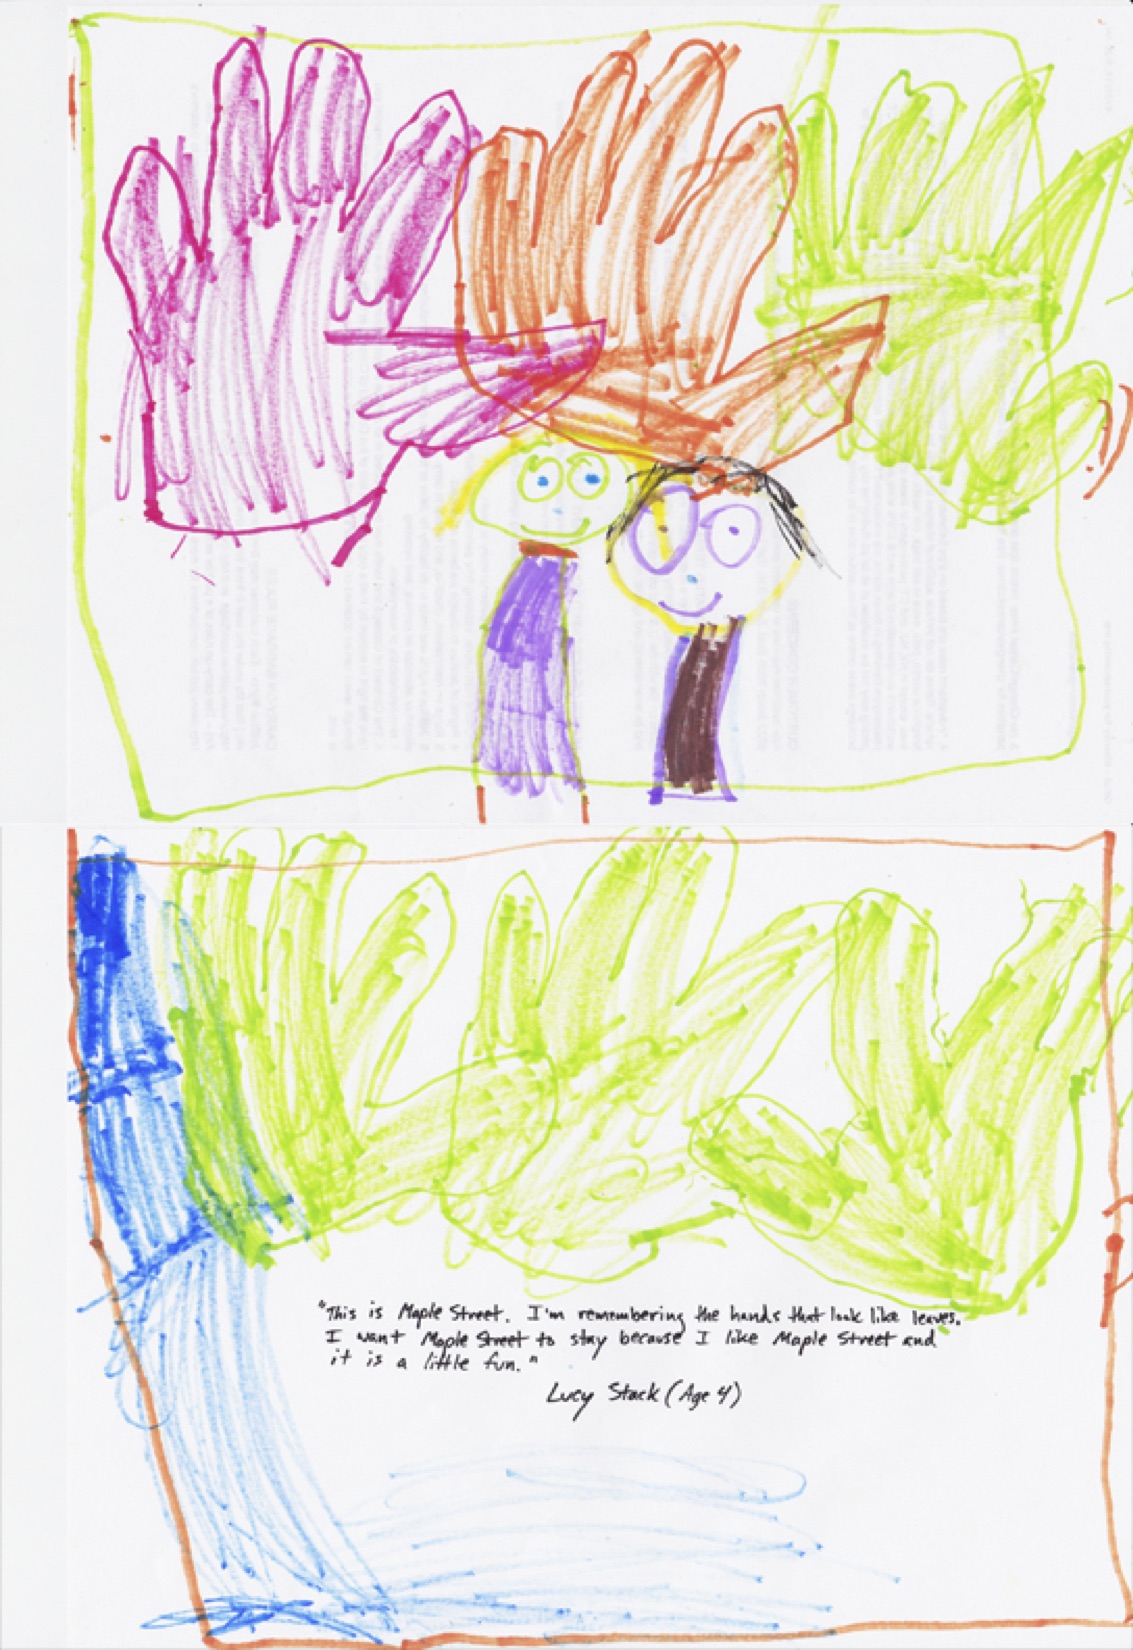 "This is Maple Street. I'm remembering the hands that look like leaves.
I want Maple Street to stay because I like Maple Street and
it is a little fun."
Lucy Stack (Age 4)